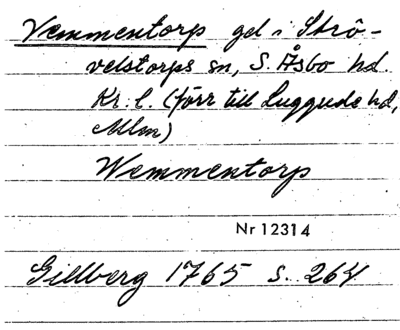 Vemmentorp gd i Strö-
velstorps sn, S. Åsbo hd.
Kr. l. (förr till Luggude hd,
Mlm)
Wemmentorp
Nr 12314
Gillberg 1765 s. 264